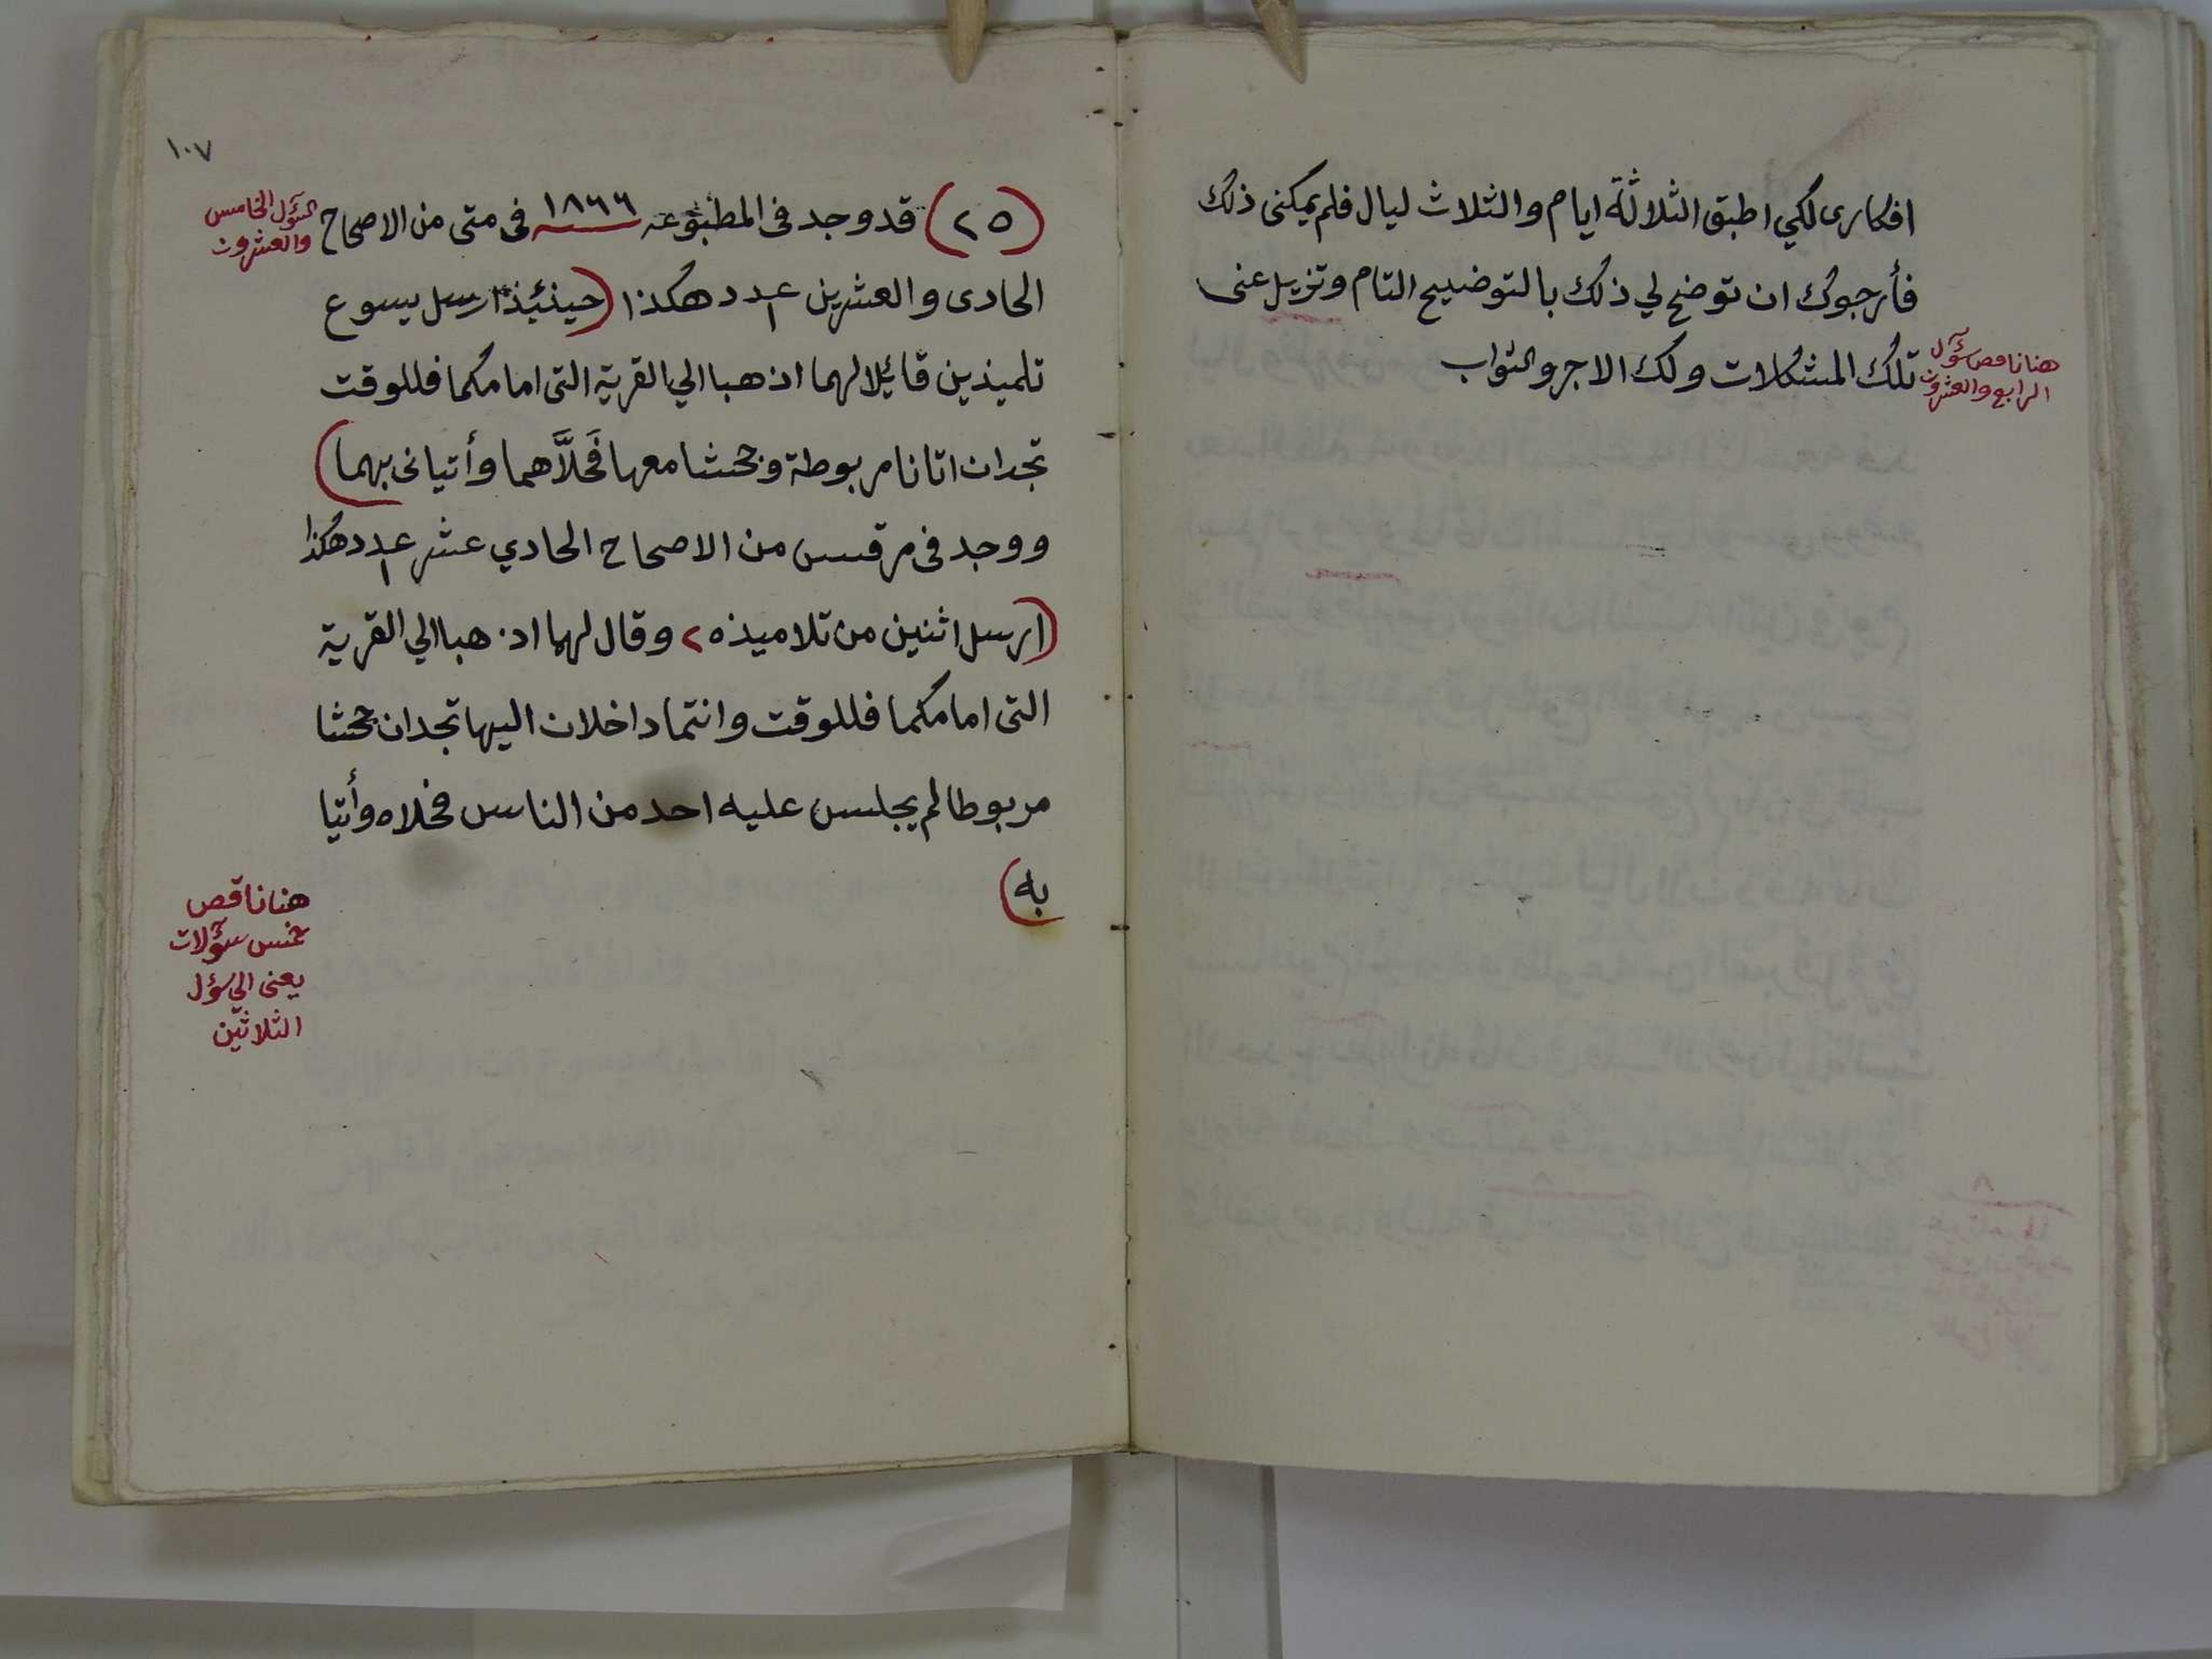 افكارى لكي اطبق الثلاثة ايام والثلاث ليال فلم يمكنى ذلك
فأرجوك ان توضح لي ذلك بالتوضيح التام وتزيل عنى
تلك المشكلات ولك الاجر والثواب
هنا ناقص سؤآل
الرابع والعشرون
١٠٧
(٢٥) قد وجد فى المطبوعه ١٨٦٦ سنه فى متى من الاصحاح
السؤل الخامس
والعشرون
الحادى والعشرين عدد ١ هكذا (حينئيذ ارسل يسوع
تلميذين قائيلا لهما اذهبا الي القرية التى امامكما فللوقت
تجدان اتانا مربوطة وجحشا معها فَحَلاَّهما وأتيانى بهما)
ووجد فى مرقس من الاصحاح الحادي عشر عدد ١ هكذا
(ارسل اثنين من تلاميذه ٢ وقال لهما اذهبا الي القرية
التى امامكما فللوقت وانتما داخلان اليها تجدان جحشا
مربوطا لم يجلس عليه احد من الناس فحلاه وأتيا
به)
هنا ناقص
خمس سؤآلات
يعنى الي سؤل
الثلاثين